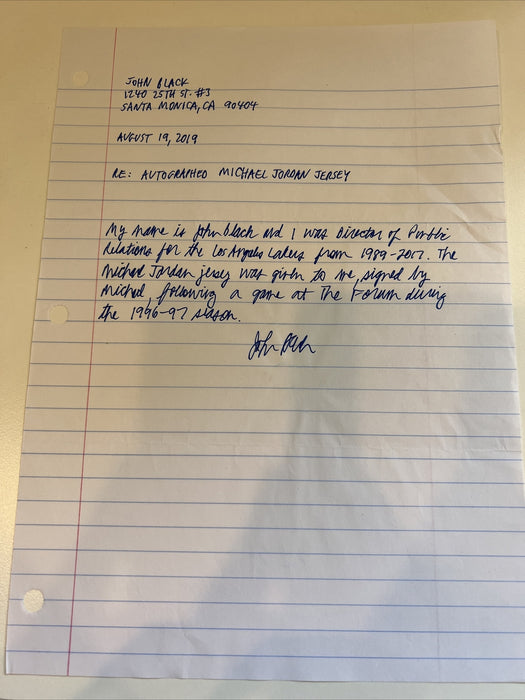 JOHN BLACK
1240 25TH ST. #3
SANTA MONICA, CA 90404
AUGUST 19, 2019
RE: AUTOGRAPHED MICHAEL JORDAN JERSEY
My name is John Black and I was Director of Public
Relations for the Los Angeles Lakers from 1989-2017. The
Michael Jordan jersey was given to me, signed by
Michael, following a game at The Forum during
the 1996-97 season.
John Black